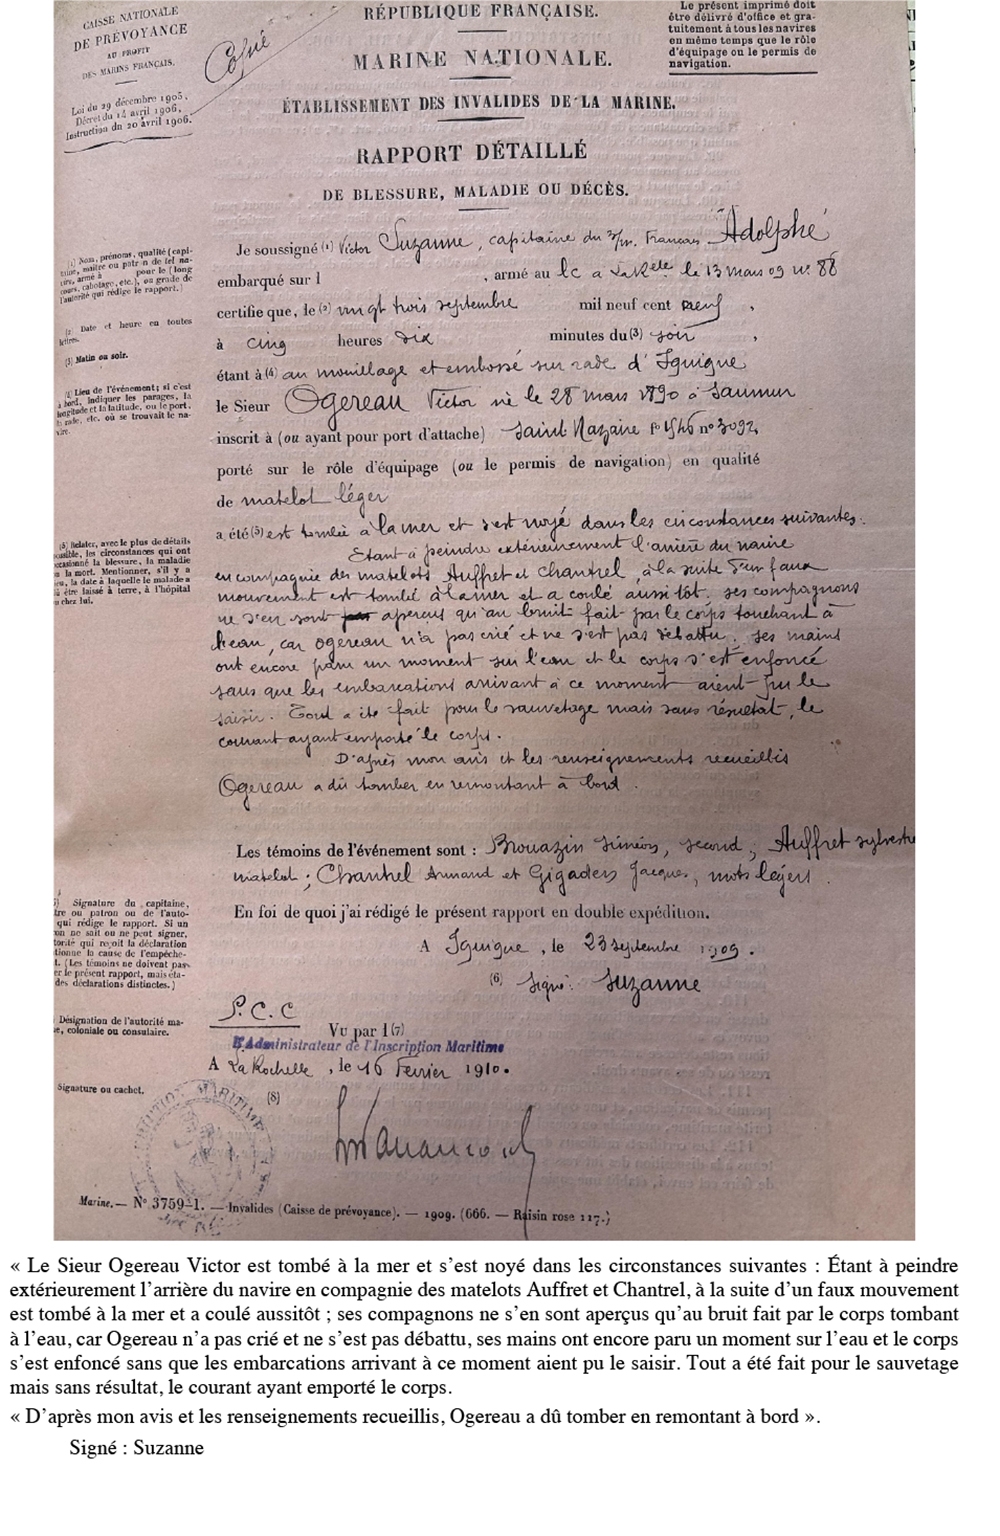 CAISSE NATIONALE
DE PRÉVOYANCE
AU PROFIT
DES MARINS FRANÇAIS.
Loi du 29 décembre 1905.
Décret du 14 avril 1906.
Instruction du 20 avril 1906.
Copie
RÉPUBLIQUE FRANÇAISE.
MARINE NATIONALE.
ÉTABLISSEMENT DES INVALIDES DE LA MARINE.
RAPPORT DÉTAILLÉ
DE BLESSURE, MALADIE OU DÉCÈS.
Le présent imprimé doit
être délivré d'office et gra-
tuitement à tous les navires
en même temps que le rôle
d'équipage ou le permis de
navigation.
(1) Nom, prénoms, qualité (capi-
taine, maître ou patron de tel na-
vire, armé à pour le (long
cours, cabotage, etc.), ou grade de
l'autorité qui rédige le rapport.)
(2) Date et heure en toutes
lettres.
(3) Matin ou soir.
(4) Lieu de l'événement; si c'est
à bord, indiquer les parages, la
longitude et la latitude, ou le port,
la rade, etc. où se trouvait le na-
vire.
(5) Relater, avec le plus de détails
possible, les circonstances qui ont
occasionné la blessure, la maladie
ou la mort. Mentionner, s'il y a
lieu, la date à laquelle le malade a
dû être laissé à terre, à l'hôpital
ou chez lui.
Je soussigné (1) Victor Suzanne, capitaine du 3/m. Français "Adolphe"
embarqué sur l , armé au lc à La Rlle le 13 mars 09 n° 88
certifie que, le (2) vingt trois septembre mil neuf cent neuf ,
à cinq heures dix minutes du (3) soir ,
étant à (4) au mouillage et embossé sur rade d'Iquique
le Sieur Ogereau Victor né le 28 mars 1890 à Saumur
inscrit à (ou ayant pour port d'attache) Saint Nazaire f° 1546 n° 3092
porté sur le rôle d'équipage (ou le permis de navigation) en qualité
de matelot léger
a été (5) est tombé à la mer et s'est noyé dans les circonstances suivantes.
Etant à peindre extérieurement l'arrière du navire
en compagnie des matelots Auffret et Chantrel, à la suite d'un faux
mouvement est tombé à la mer et a coulé aussitôt. ses compagnons
ne s'en sont aperçus qu'au bruit fait par le corps touchant à
l'eau, car Ogereau n'a pas crié et ne s'est pas débattu. ses mains
ont encore paru un moment sur l'eau et le corps s'est enfoncé
sans que les embarcations arrivant à ce moment aient pu le
saisir. Tout a été fait pour le sauvetage mais sans résultat, le
courant ayant emporté le corps.
D'après mon avis et les renseignements recueillis
Ogereau a dû tomber en remontant à bord.
Les témoins de l'événement sont : Brouazin Siméon, second; Auffret sylvestre
matelot; Chantrel Armand et Gigaders Jacques, mots légers.
En foi de quoi j'ai rédigé le présent rapport en double expédition.
A Iquique, le 23 septembre 1909.
(6) Signé: Suzanne
Signature du capitaine,
tre ou patron ou de l'auto-
qui rédige le rapport. Si un
on ne sait ou ne peut signer,
torité qui reçoit la déclaration
tionne la cause de l'empêche-
t. (Les témoins ne doivent pas
er le présent rapport, mais éta-
des déclarations distinctes.)
Désignation de l'autorité ma-
e, coloniale ou consulaire.
Signature ou cachet.
P.C.C
Vu par l (7)
L'Administrateur de l'Inscription Maritime
A La Rochelle, le 16 Février 1910.
(8)
Marine. — N° 3759-1. — Invalides (Caisse de prévoyance). — 1909. (666. — Raisin rose 117.)
« Le Sieur Ogereau Victor est tombé à la mer et s'est noyé dans les circonstances suivantes : Étant à peindre
extérieurement l'arrière du navire en compagnie des matelots Auffret et Chantrel, à la suite d'un faux mouvement
est tombé à la mer et a coulé aussitôt ; ses compagnons ne s'en sont aperçus qu'au bruit fait par le corps tombant
à l'eau, car Ogereau n'a pas crié et ne s'est pas débattu, ses mains ont encore paru un moment sur l'eau et le corps
s'est enfoncé sans que les embarcations arrivant à ce moment aient pu le saisir. Tout a été fait pour le sauvetage
mais sans résultat, le courant ayant emporté le corps.
« D'après mon avis et les renseignements recueillis, Ogereau a dû tomber en remontant à bord ».
Signé : Suzanne